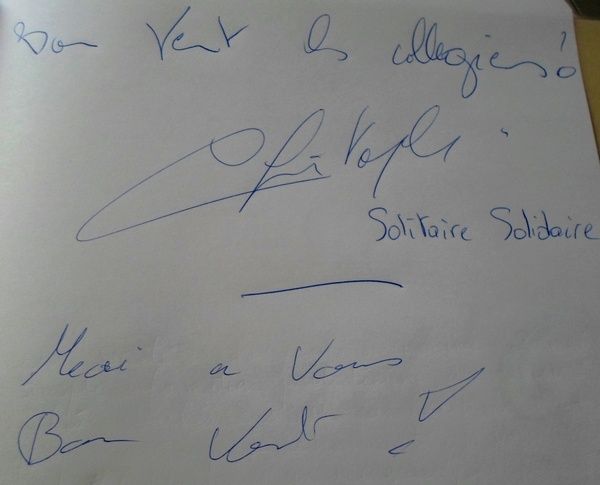 Bon Vent les collegiens !
Christophe
Solitaire Solidaire
Merci a Vous
Bon Vent !